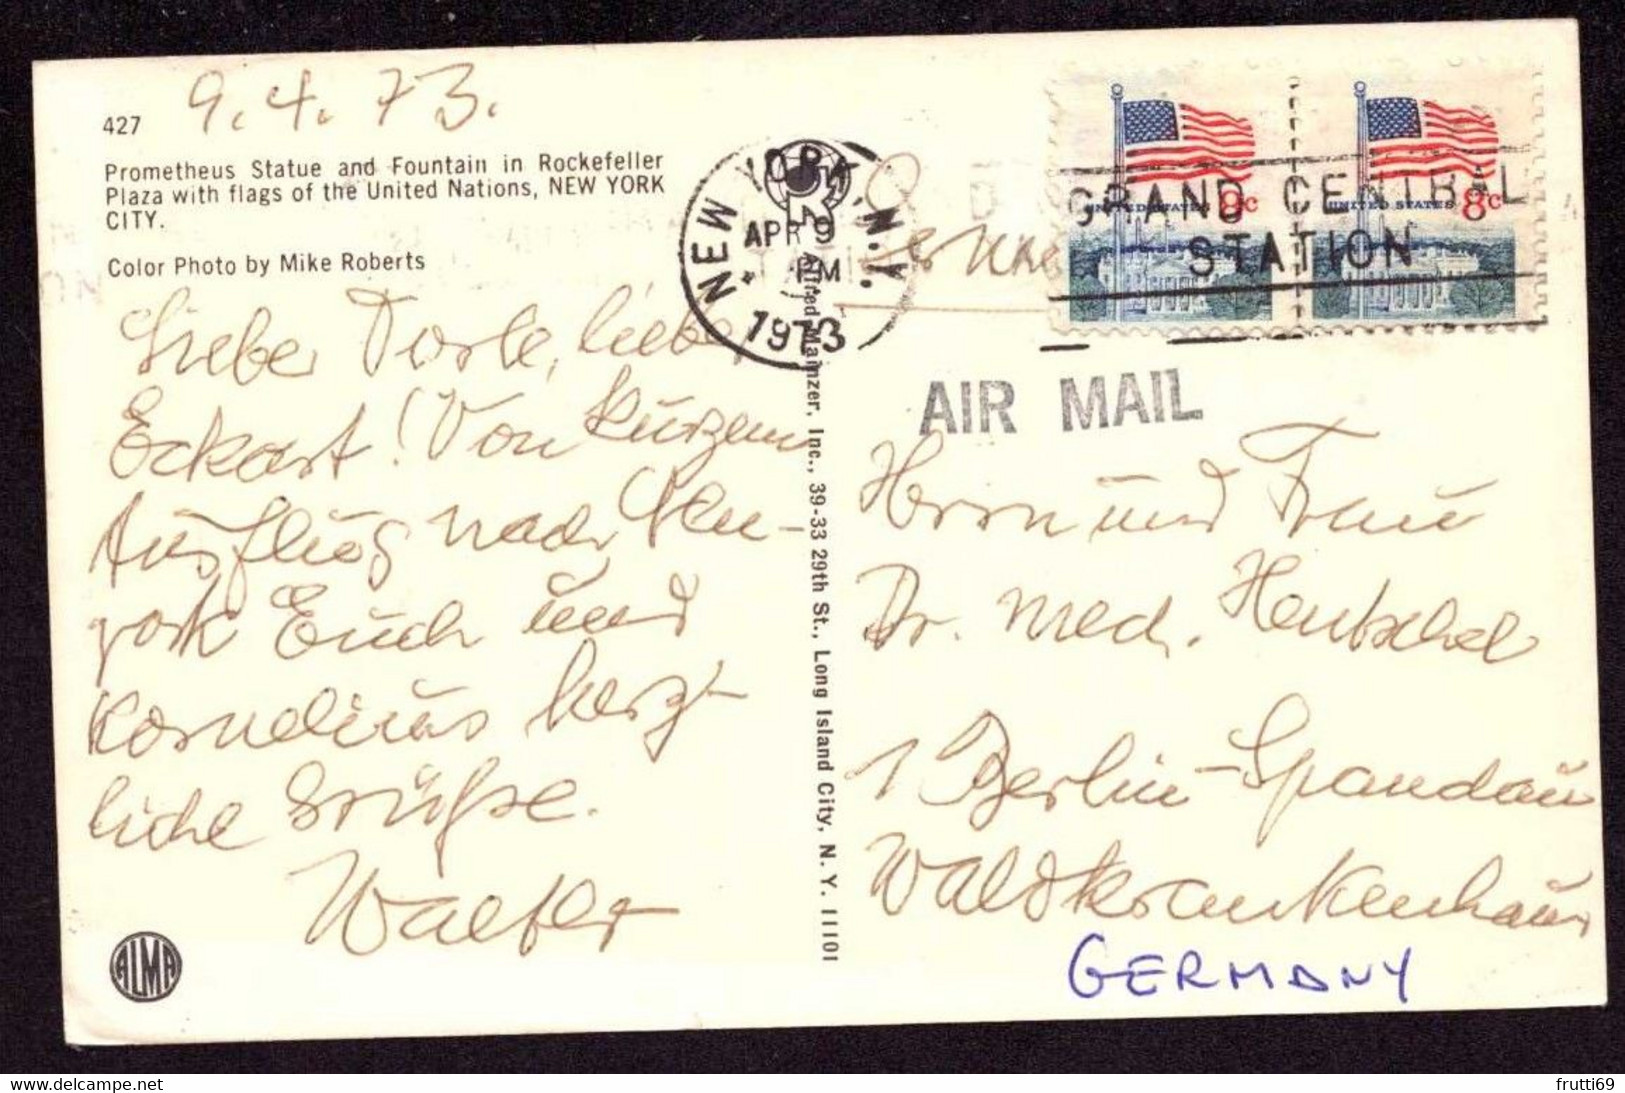 427
9.4.73.
Prometheus Statue and Fountain in Rockefeller
Plaza with flags of the United Nations, NEW YORK
CITY.
Color Photo by Mike Roberts
Liebe Dorle, lieber
Eckart! Von kurzem
Ausflug nach New-
york Euch und
Kornelius herz-
liche Grüße.
Walter
ALMA
Alfred Mainzer, Inc., 39-33 29th St., Long Island City, N. Y. 11101
NEW YORK, N.Y.
APR 9
PM
1973
GRAND CENTRAL
STATION
UNITED STATES 8c
UNITED STATES 8c
AIR MAIL
Herrn und Frau
Dr. med. Hentschel
1 Berlin-Spandau
Waldkrankenhaus
GERMANY
frutti69